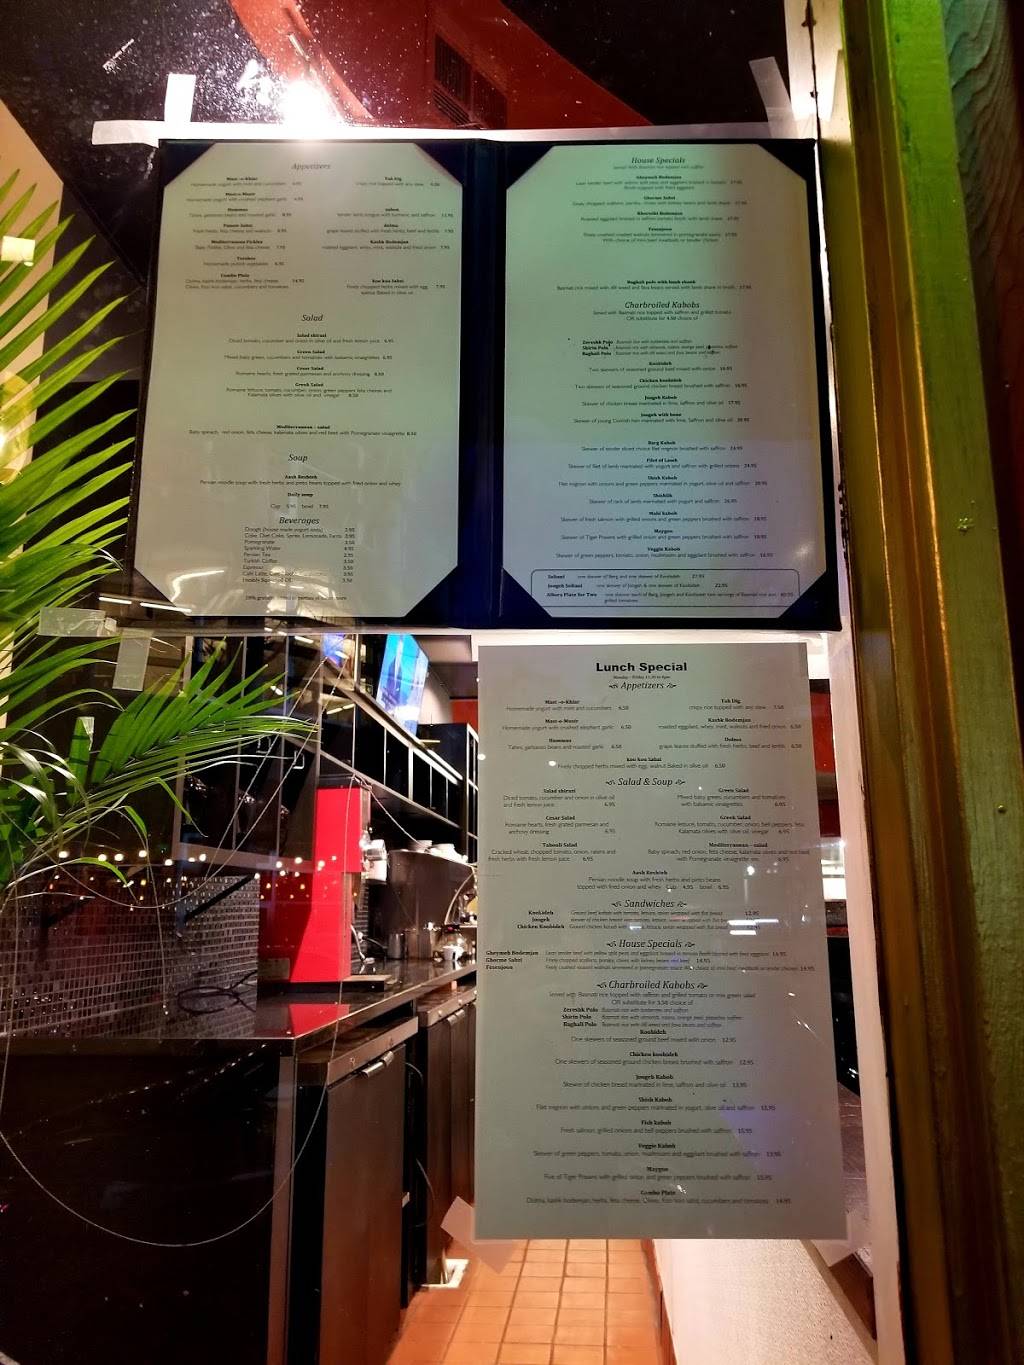 Appetizers
Mast -o-Khiar
Homemade yogurt with mint and cucumbers
Tah Dig
crispy rice topped with any stew
Homemade yogurt with crushed elephant garlic
Hummus
Tahini, garbanzo beans and roasted garlic
Dolma
grape leaves stuffed with fresh herbs, beef and lentils 7.50
Kashk Bodemjan
roasted eggplant, whey, mint, walnuts and fried onion 7.95
Torshee
Combo Plate
Dolma, kashk bodemjan, herbs, feta cheese 14.95
Olives, Kou kou sabzi, cucumbers and tomatoes
Kou kou Sabzi
Finely chopped herbs mixed with egg, 7.95
walnut Baked in olive oil
Salad
Salad shirazi
Diced tomato, cucumber and onion in olive oil and fresh lemon juice 6.95
Green Salad
Mixed baby green, cucumbers and tomatoes with balsamic vinaigrettes 6.95
Cesar Salad
Romaine hearts, fresh grated parmesan and anchovy dressing 8.50
Greek Salad
Romaine lettuce, tomato, cucumber, onion, green peppers feta cheese and
Kalamata olives with olive oil and vinegar 8.50
Mediterranean - salad
Baby spinach, red onion, feta cheese, kalamata olives and red beet with Pomegranate vinaigrette 8.50
Soup
Aash Reshteh
Persian noodle soup with fresh herbs and pinto beans topped with fried onion and whey
Daily soup
Cup 5.95 bowl 7.95
Beverages
Doogh (house made yogurt soda) 3.95
Coke, Diet Coke, Sprite, Lemonade
Pomegranate 3.50
Sparkling Water 4.95
Persian Tea 2.95
Turkish Coffee 3.50
Espresso 3.50
House Specials
Served with Basmati rice topped with saffron
Gheymeh Bodemjan
Ghorme Sabzi
Fesenjoon
Baghali polo with lamb shank
Charbroiled Kabobs
Served with Basmati rice topped with saffron and grilled tomato
OR substitute for 4.50 choice of
Zereshk Polo
Shirin Polo
Baghali Polo
Koobideh
Two skewers of seasoned ground beef mixed with onion 16.95
Chicken koobideh
Two skewers of seasoned ground chicken breast brushed with saffron 16.95
Joujeh Kabob
Skewer of chicken breast marinated in lime, saffron and olive oil 17.95
Joujeh with bone
Skewer of young Cornish hen marinated with lime, Saffron and olive oil
Barg Kabob
Filet of Lamb
Skewer of filet of lamb marinated with yogurt and saffron with grilled onions 24.95
Shish Kabob
Filet mignon with onions and green peppers marinated in yogurt, olive oil and saffron
Shishlik
Skewer of rack of lamb marinated with yogurt and saffron
Mahi kabob
Skewer of fresh salmon with grilled onions and green peppers brushed with saffron 18.95
Maygoo
Skewer of Tiger Prawns with grilled onion and green peppers brushed with saffron 18.95
Veggie Kabob
Skewer of green peppers, tomato, onion, mushroom and eggplant brushed with saffron
Soltani one skewer of Barg and one skewer of Koobideh 27.95
Joujeh Soltani one skewer of Joujeh & one skewer of Koobideh 22.95
Lunch Special
Monday - Friday 11:30 to 4pm
Appetizers
Mast -o-Khiar
Homemade yogurt with mint and cucumbers 6.50
Tah Dig
crispy rice topped with any stew 7.50
Mast-o-Musir
Homemade yogurt with crushed elephant garlic 6.50
Kashk Bodemjan
roasted eggplant, whey, mint, walnuts and fried onion 6.50
Hummus
Tahini, garbanzo beans and roasted garlic 6.50
Dolma
grape leaves stuffed with fresh herbs, beef and lentils 6.50
kou kou Sabzi
Finely chopped herbs mixed with egg, walnut Baked in olive oil 6.50
Salad & Soup
Salad shirazi
Diced tomato, cucumber and onion in olive oil
and fresh lemon juice 6.95
Green Salad
Mixed baby greens, cucumbers and tomatoes
with balsamic vinaigrettes 6.95
Cesar Salad
Romaine hearts, fresh grated parmesan and
anchovy dressing 6.95
Greek Salad
Romaine lettuce, tomato, cucumber, onion, bell peppers, feta,
Kalamata olives with olive oil, vinegar 6.95
Tabouli Salad
Cracked wheat, chopped tomato, onion, raisins and
fresh herbs with fresh lemon juice 6.95
Mediterranean - salad
Baby spinach, red onion, feta cheese, kalamata olives and red beet
with Pomegranate vinaigrette 6.95
Aash Reshteh
Persian noodle soup with fresh herbs and pinto beans
topped with fried onion and whey Cup 4.95 bowl 6.95
Sandwiches
Koobideh Ground beef kabob with tomato, lettuce, onion wrapped with flat bread 12.95
Joojeh
Chicken Koobideh
House Specials
Gheymeh Bodemjan
Ghorme Sabzi
Fesenjoon
Charbroiled Kabobs
Served with Basmati rice topped with saffron and grilled tomato or mix green salad
OR substitute for 3.50 choice of
Zereshk Polo
Shirin Polo
Baghali Polo
Koobideh
One skewers of seasoned ground beef mixed with onion 12.95
Chicken koobideh
One skewers of seasoned ground chicken breast brushed with saffron 12.95
Joujeh Kabob
Skewer of chicken breast marinated in lime, saffron and olive oil 13.95
Shish Kabob
Filet mignon with onions and green peppers marinated in yogurt, olive oil and saffron 15.95
Fish kabob
Fresh salmon, grilled onions and bell peppers brushed with saffron 15.95
Veggie Kabob
Skewer of green peppers, tomato, onion, mushroom and eggplant brushed with saffron 13.95
Maygoo
Five of Tiger Prawns with grilled onion, and green peppers brushed with saffron 15.95
Combo Plate
Dolma, kashk bodemjan, herbs, feta cheese, Olives, Kou kou sabzi, cucumbers and tomatoes 14.95